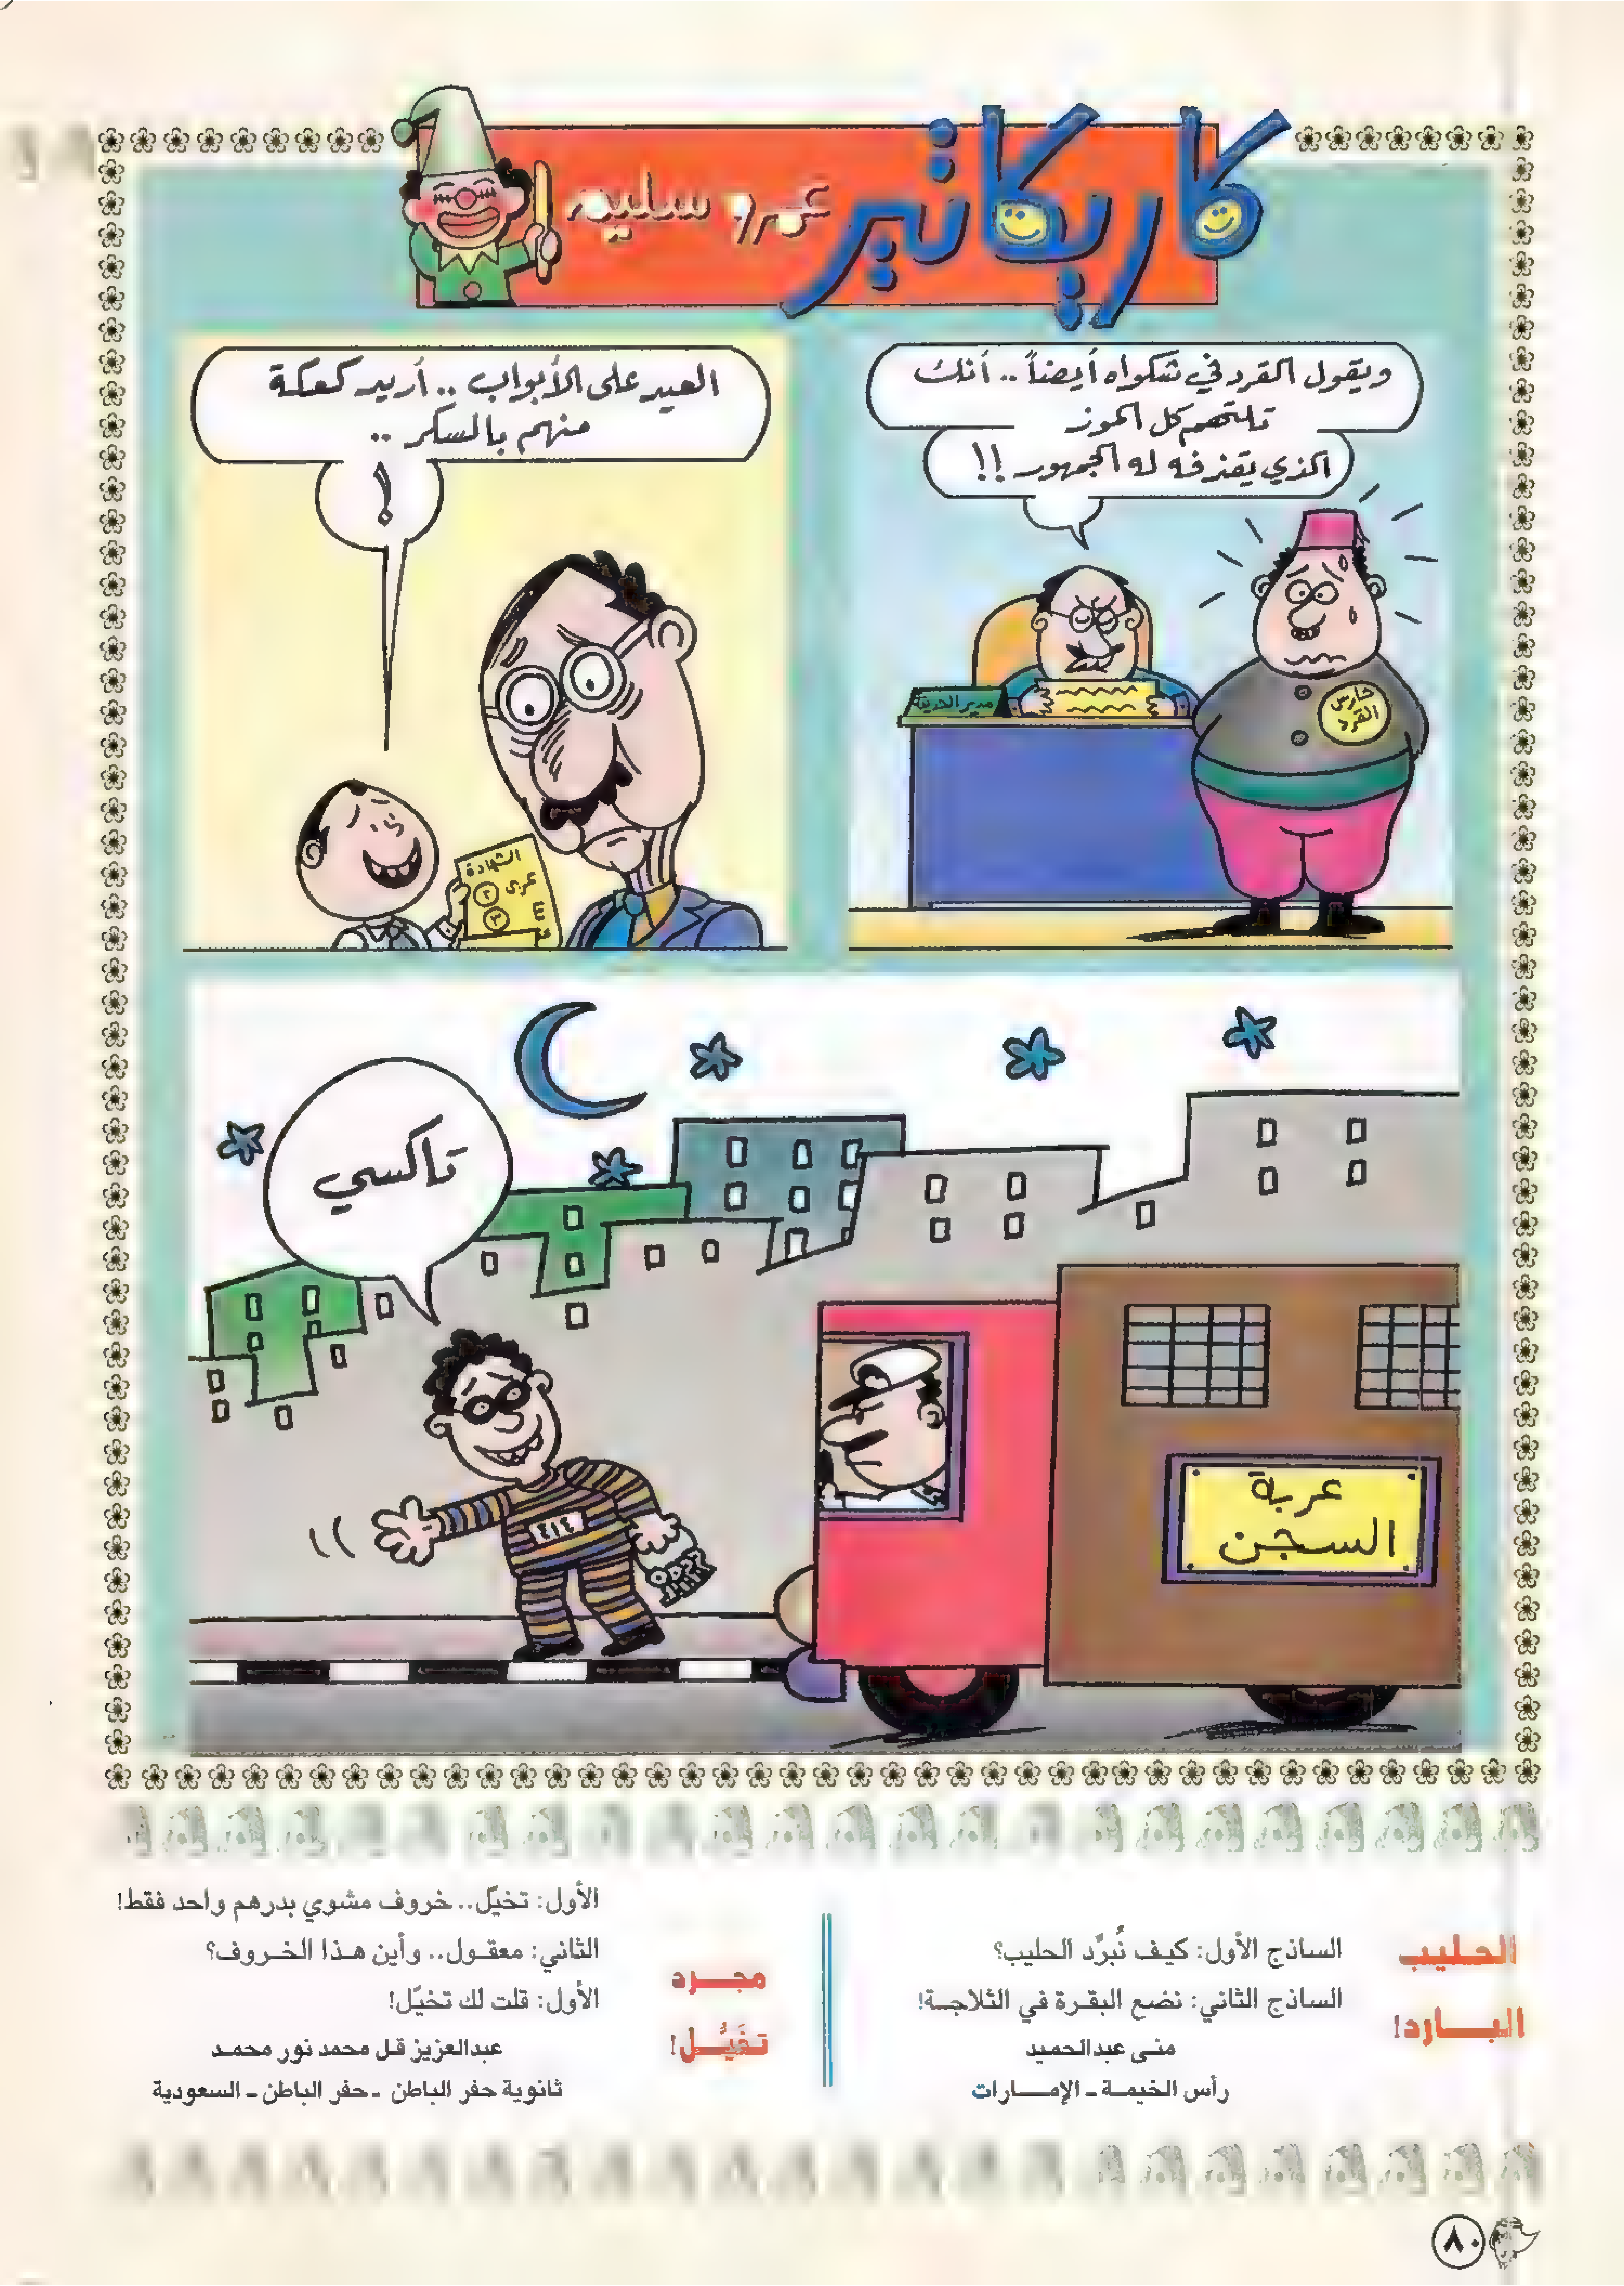 كاريكاتير
عمرو سليم
ويقول القرد في شكواه أيضاً .. أنك
تلتهم كل الموز
الذي يقذفه له الجمهور !!
مدير الحديقة
حارس
القرد
العيد على الأبواب .. أريد كعكة
منهم بالسكر ..
!
الشهادة
عربى ٢
٣
تاكسي
٤١٤
عربة
السجن
الحليب
البارد!
الساذج الأول: كيف نُبرِّد الحليب؟
الساذج الثاني: نضع البقرة في الثلاجة!
منى عبدالحميد
رأس الخيمة - الإمارات
مجرد
تخيُّل!
الأول: تخيّل.. خروف مشوي بدرهم واحد فقط!
الثاني: معقول.. وأين هذا الخروف؟
الأول: قلت لك تخيّل!
عبدالعزيز قل محمد نور محمد
ثانوية حفر الباطن - حفر الباطن - السعودية
٨٠